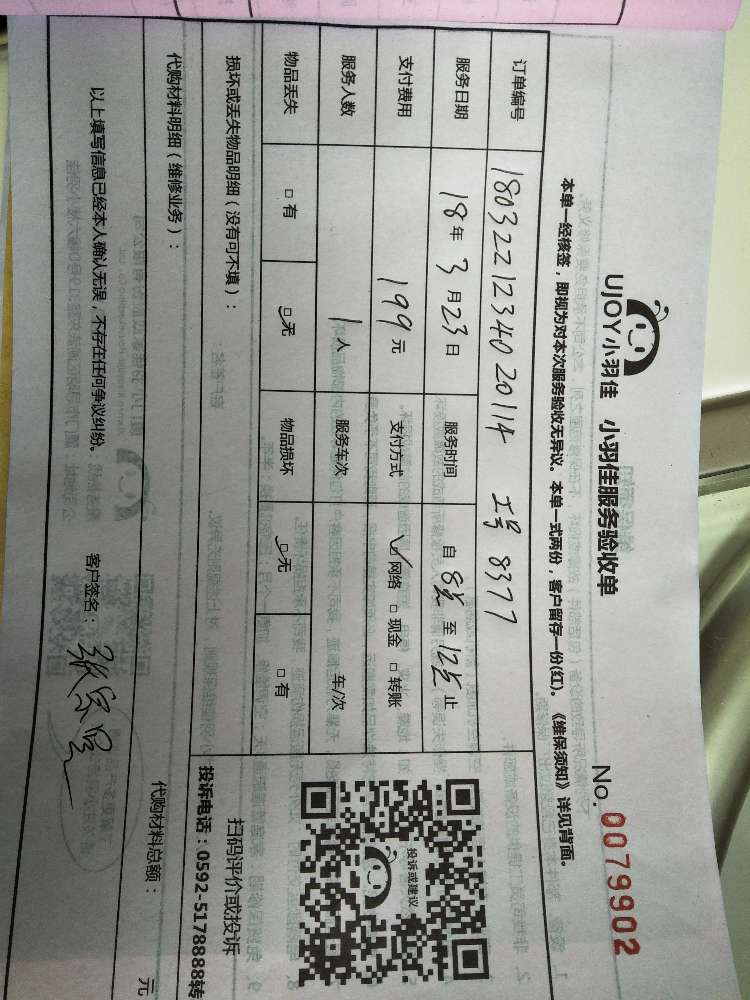 UJOY小羽佳 小羽佳服务验收单 No. 0079902
本单一经核签，即视为对本次服务验收无异议。本单一式两份，客户留存一份(红)。《维保须知》详见背面。
订单编号 18032212340 20114 工号 8377
服务日期 18年3月23日 服务时间 自 8点 至 12点 止
支付费用 199元 支付方式 ☑网络 □现金 □转账
服务人数 1人 服务车次 车/次
物品丢失 □有 ☑无 物品损坏 ☑无 □有
损坏或丢失物品明细（没有可不填）：
代购材料明细（维修业务）：
代购材料总额： 元
以上填写信息已经本人确认无误，不存在任何争议纠纷。 客户签名：
投诉或建议
扫码评价或投诉
投诉电话：0592-5178888转